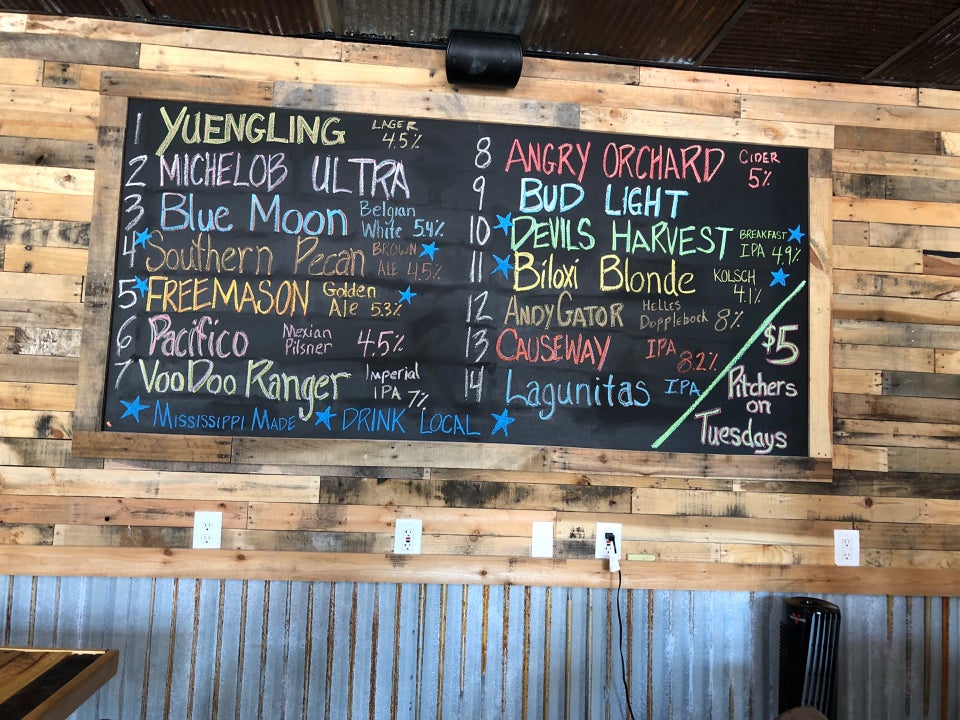 1 YUENGLING LAGER 4.5%
2 MICHELOB ULTRA
3 Blue Moon Belgian White 5.4%
4 Southern Pecan BROWN ALE 4.5%
5 FREEMASON Golden Ale 5.3%
6 Pacifico Mexian Pilsner 4.5%
7 VooDoo Ranger Imperial IPA 7%
MISSISSIPPI MADE DRINK LOCAL
8 ANGRY ORCHARD CIDER 5%
9 BUD LIGHT
10 DEVILS HARVEST BREAKFAST IPA 4.9%
11 Biloxi Blonde KOLSCH 4.1%
12 ANDYGATOR HELLES Dopplebock 8%
13 CAUSEWAY IPA 8.2%
14 LAGUNITAS IPA
$5
Pitchers
on
Tuesdays